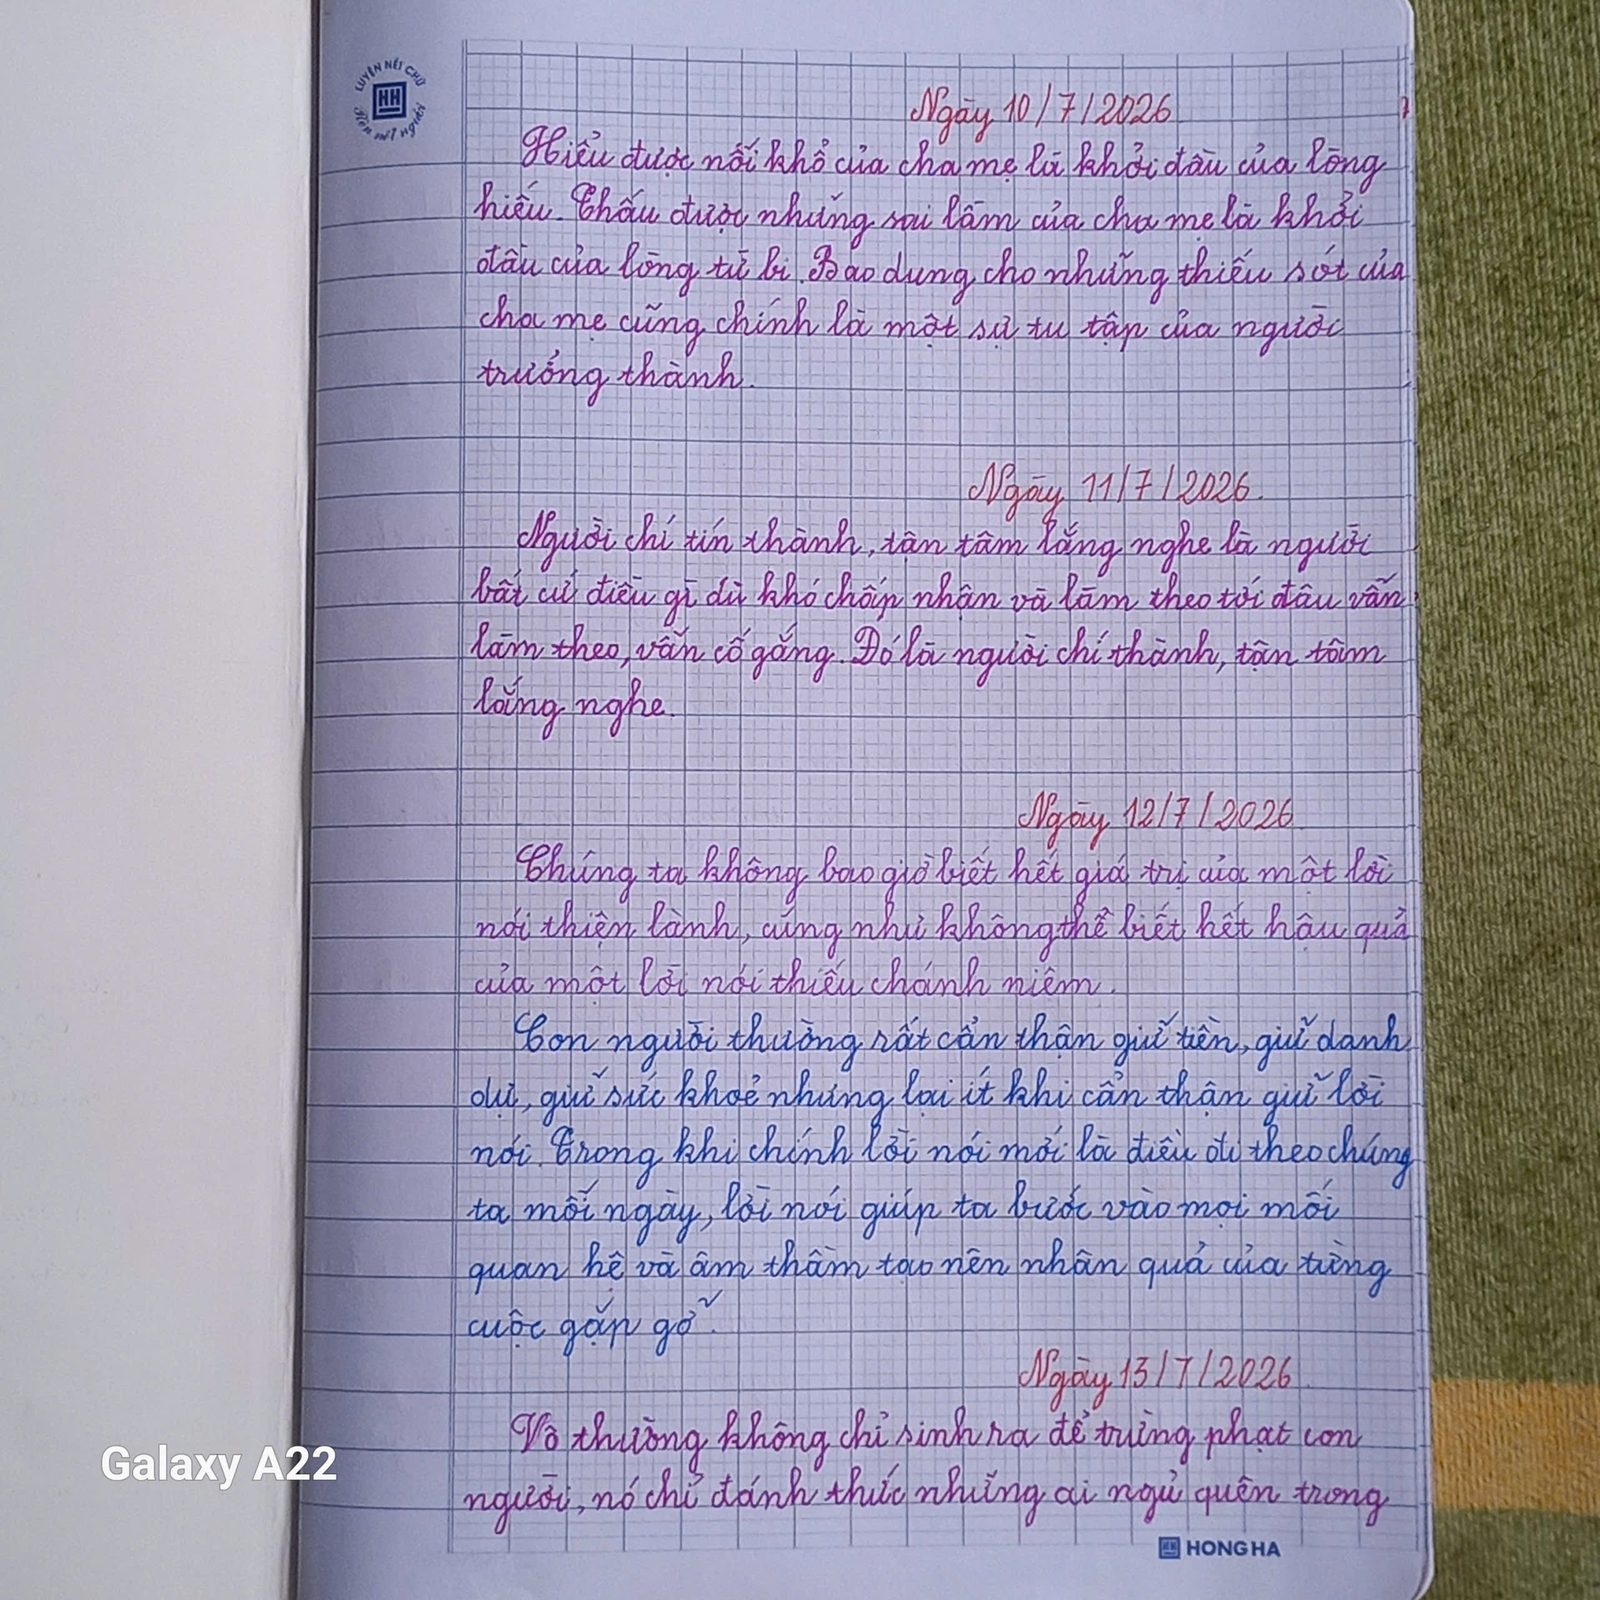 LUYỆN NÉT CHỮ
HH
Rèn nết người
Ngày 10/7/2026
Hiểu được nỗi khổ của cha mẹ là khởi đầu của lòng
hiếu. Thấu được những sai lầm của cha mẹ là khởi
đầu của lòng từ bi. Bao dung cho những thiếu sót của
cha mẹ cũng chính là một sự tu tập của người
trưởng thành.
Ngày 11/7/2026.
Người chí tín thành, tận tâm lắng nghe là người
bất cứ điều gì dù khó chấp nhận và làm theo tới đâu vẫn
làm theo, vẫn cố gắng. Đó là người chí thành, tận tâm
lắng nghe.
Ngày 12/7/2026
Chúng ta không bao giờ biết hết giá trị của một lời
nói thiện lành, cũng như không thể biết hết hậu quả
của một lời nói thiếu chánh niệm.
Con người thường rất cẩn thận giữ tiền, giữ danh
dự, giữ sức khoẻ nhưng lại ít khi cẩn thận giữ lời
nói. Trong khi chính lời nói mới là điều đi theo chúng
ta mỗi ngày, lời nói giúp ta bước vào mọi mối
quan hệ và âm thầm tạo nên nhân quả của từng
cuộc gặp gỡ.
Ngày 13/7/2026
Vô thường không chỉ sinh ra để trừng phạt con
người, nó chỉ đánh thức những ai ngủ quên trong
HONG HA
Galaxy A22